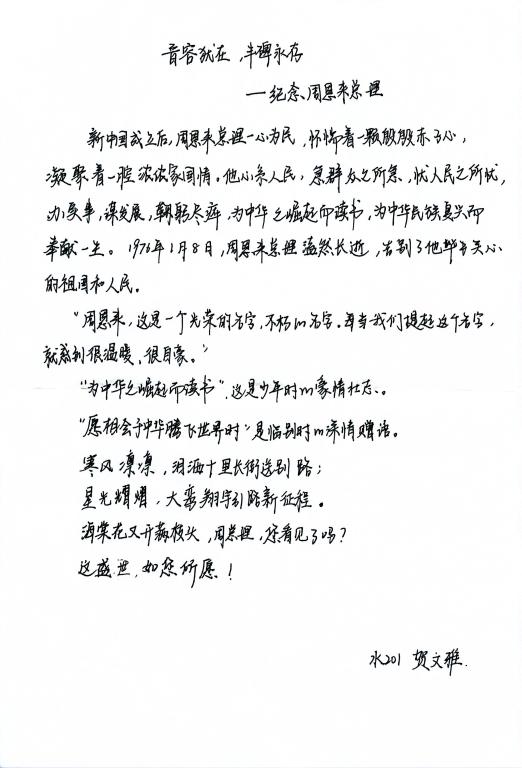 音容犹在，丰碑永存
——纪念周恩来总理
新中国成立后，周恩来总理一心为民，怀惴着一颗殷殷赤子心，
凝聚着一腔浓浓家国情。他心系人民，急群众之所急，忧人民之所忧，
办实事，谋发展，鞠躬尽瘁，为中华之崛起而读书，为中华民族复兴而
奉献一生。1976年1月8日，周恩来总理溘然长逝，告别了他毕生关心
的祖国和人民。
"周恩来，这是一个光荣的名字，不朽的名字。每当我们提起这个名字，
就感到很温暖、很自豪。"
"为中华之崛起而读书"，这是少年时的豪情壮志。
"愿相会于中华腾飞世界时"是临别时的深情赠语。
寒风凛凛，泪洒十里长街送别路；
星光熠熠，大鸾翔宇引路新征程。
海棠花又开满枝头，周总理，您看见了吗？
这盛世，如您所愿！
水201 贺文雅.